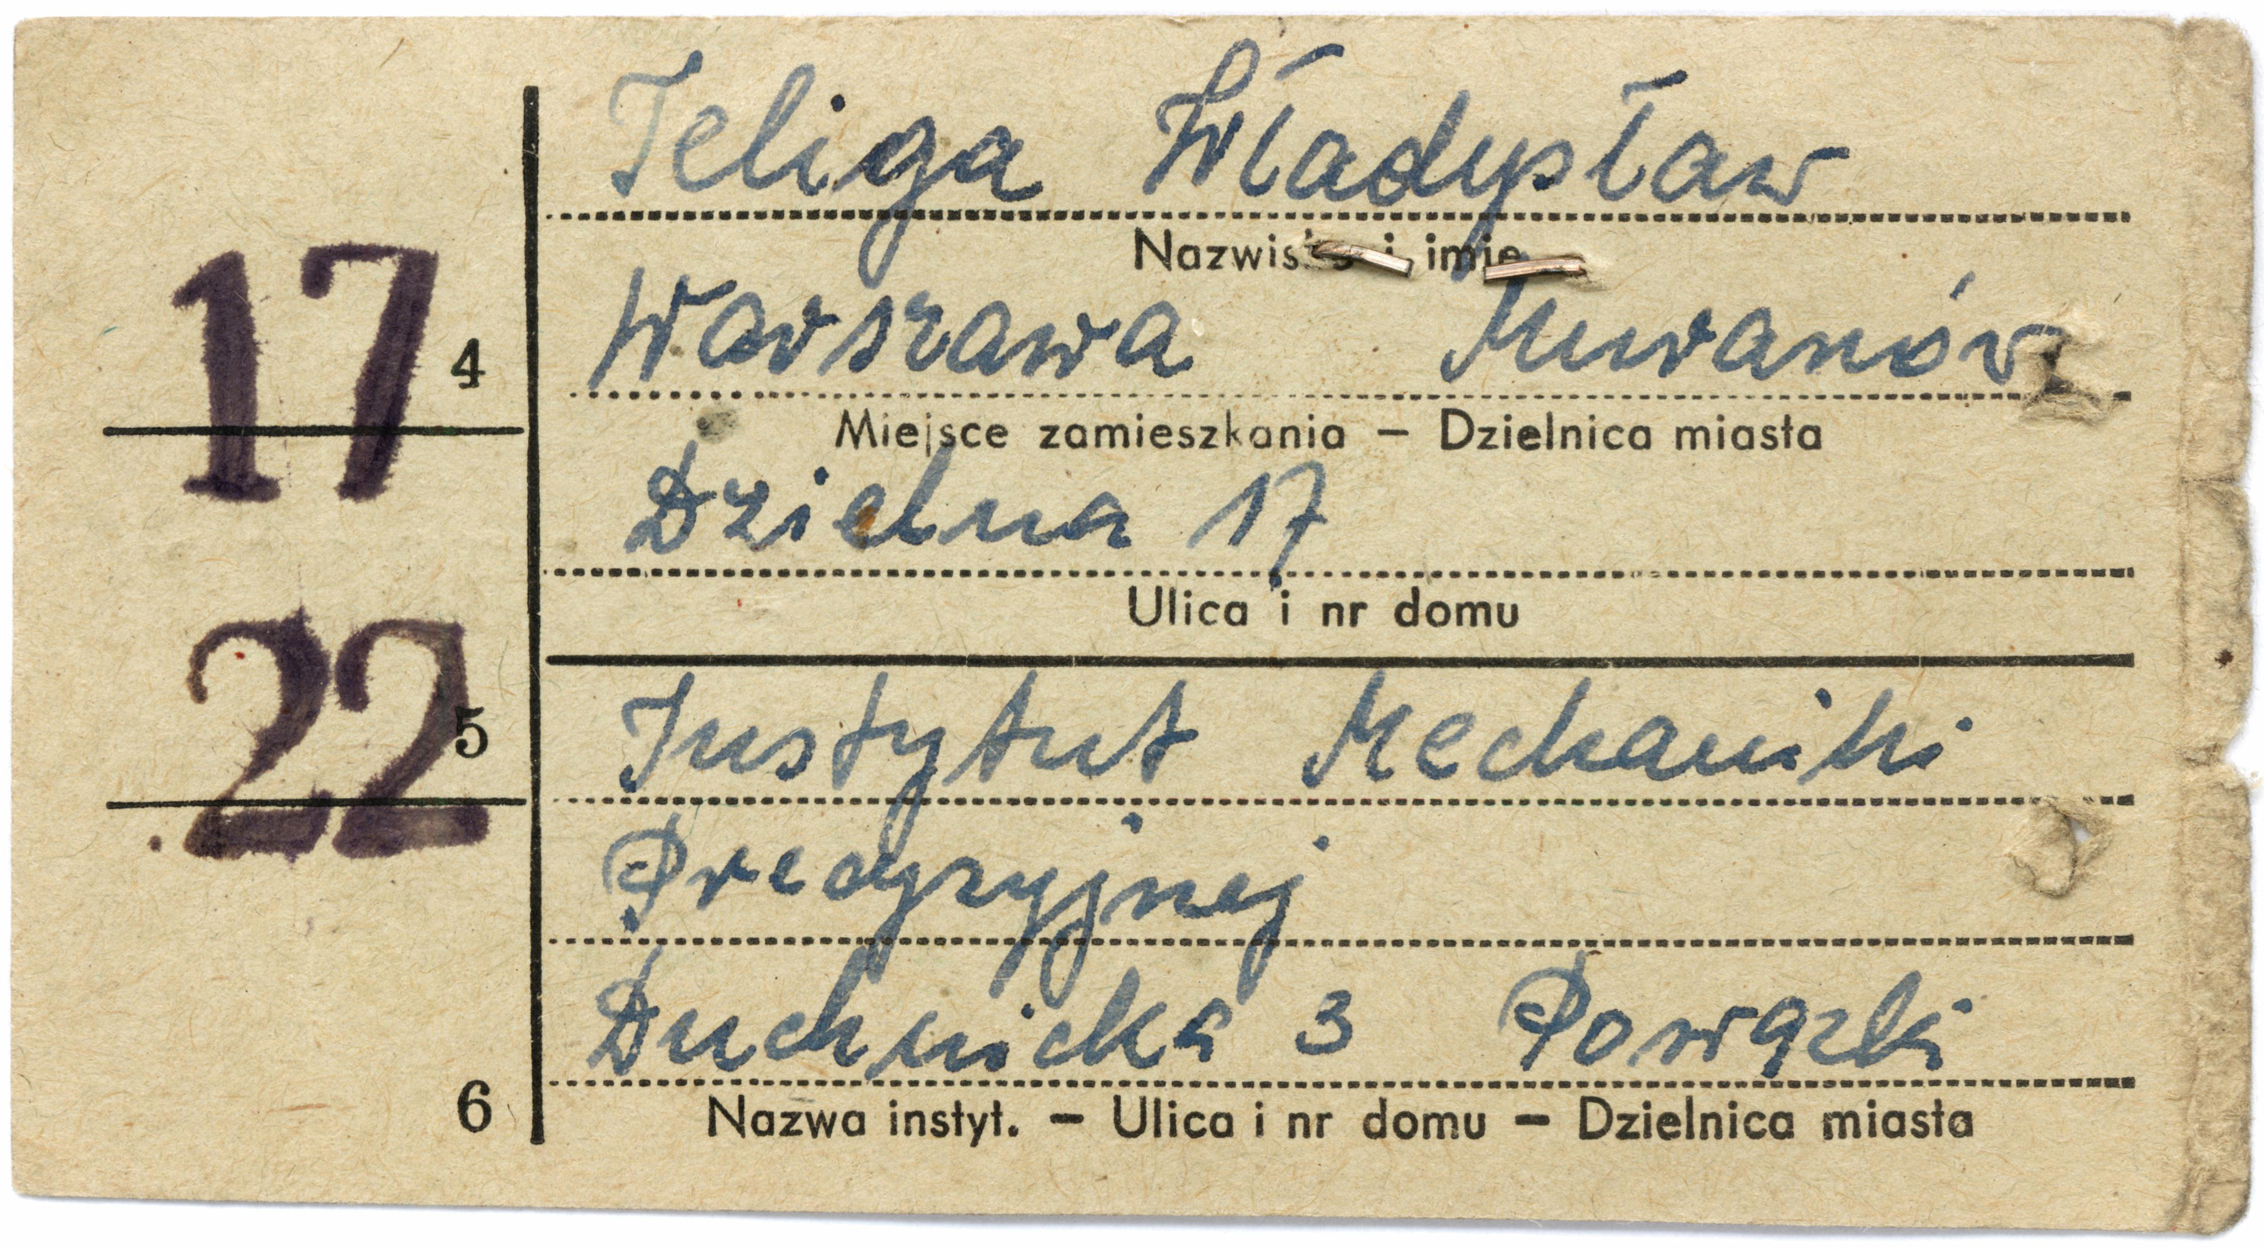 Teliga Władysław
Nazwisko i imię
Warszawa Muranów
17
4
Miejsce zamieszkania – Dzielnica miasta
Dzielna 17
Ulica i nr domu
22
5
Instytut Mechaniki
Precyzyjnej
Duchnicka 3 Powązki
6
Nazwa instyt. – Ulica i nr domu – Dzielnica miasta